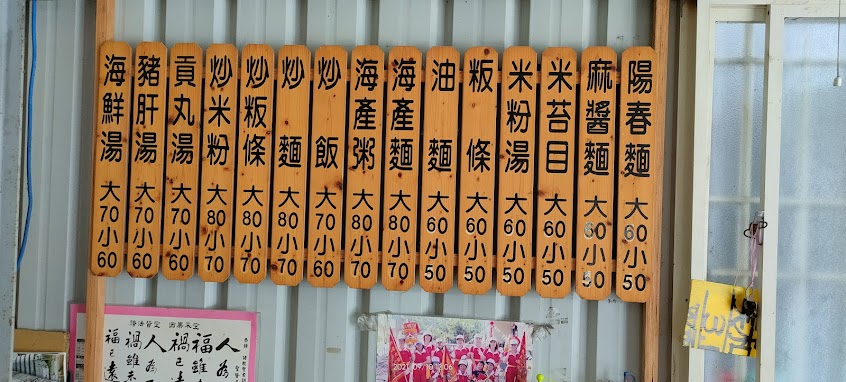 陽春麵 大60小50
麻醬麵 大60小50
米苔目 大60小50
米粉湯 大60小50
粄條 大60小50
油麵 大60小50
海產麵 大80小70
海產粥 大80小70
炒飯 大70小60
炒麵 大80小70
炒粄條 大80小70
炒米粉 大80小70
貢丸湯 大70小60
豬肝湯 大70小60
海鮮湯 大70小60
人為
福雖
禍已
人為
禍雖未
福已遠